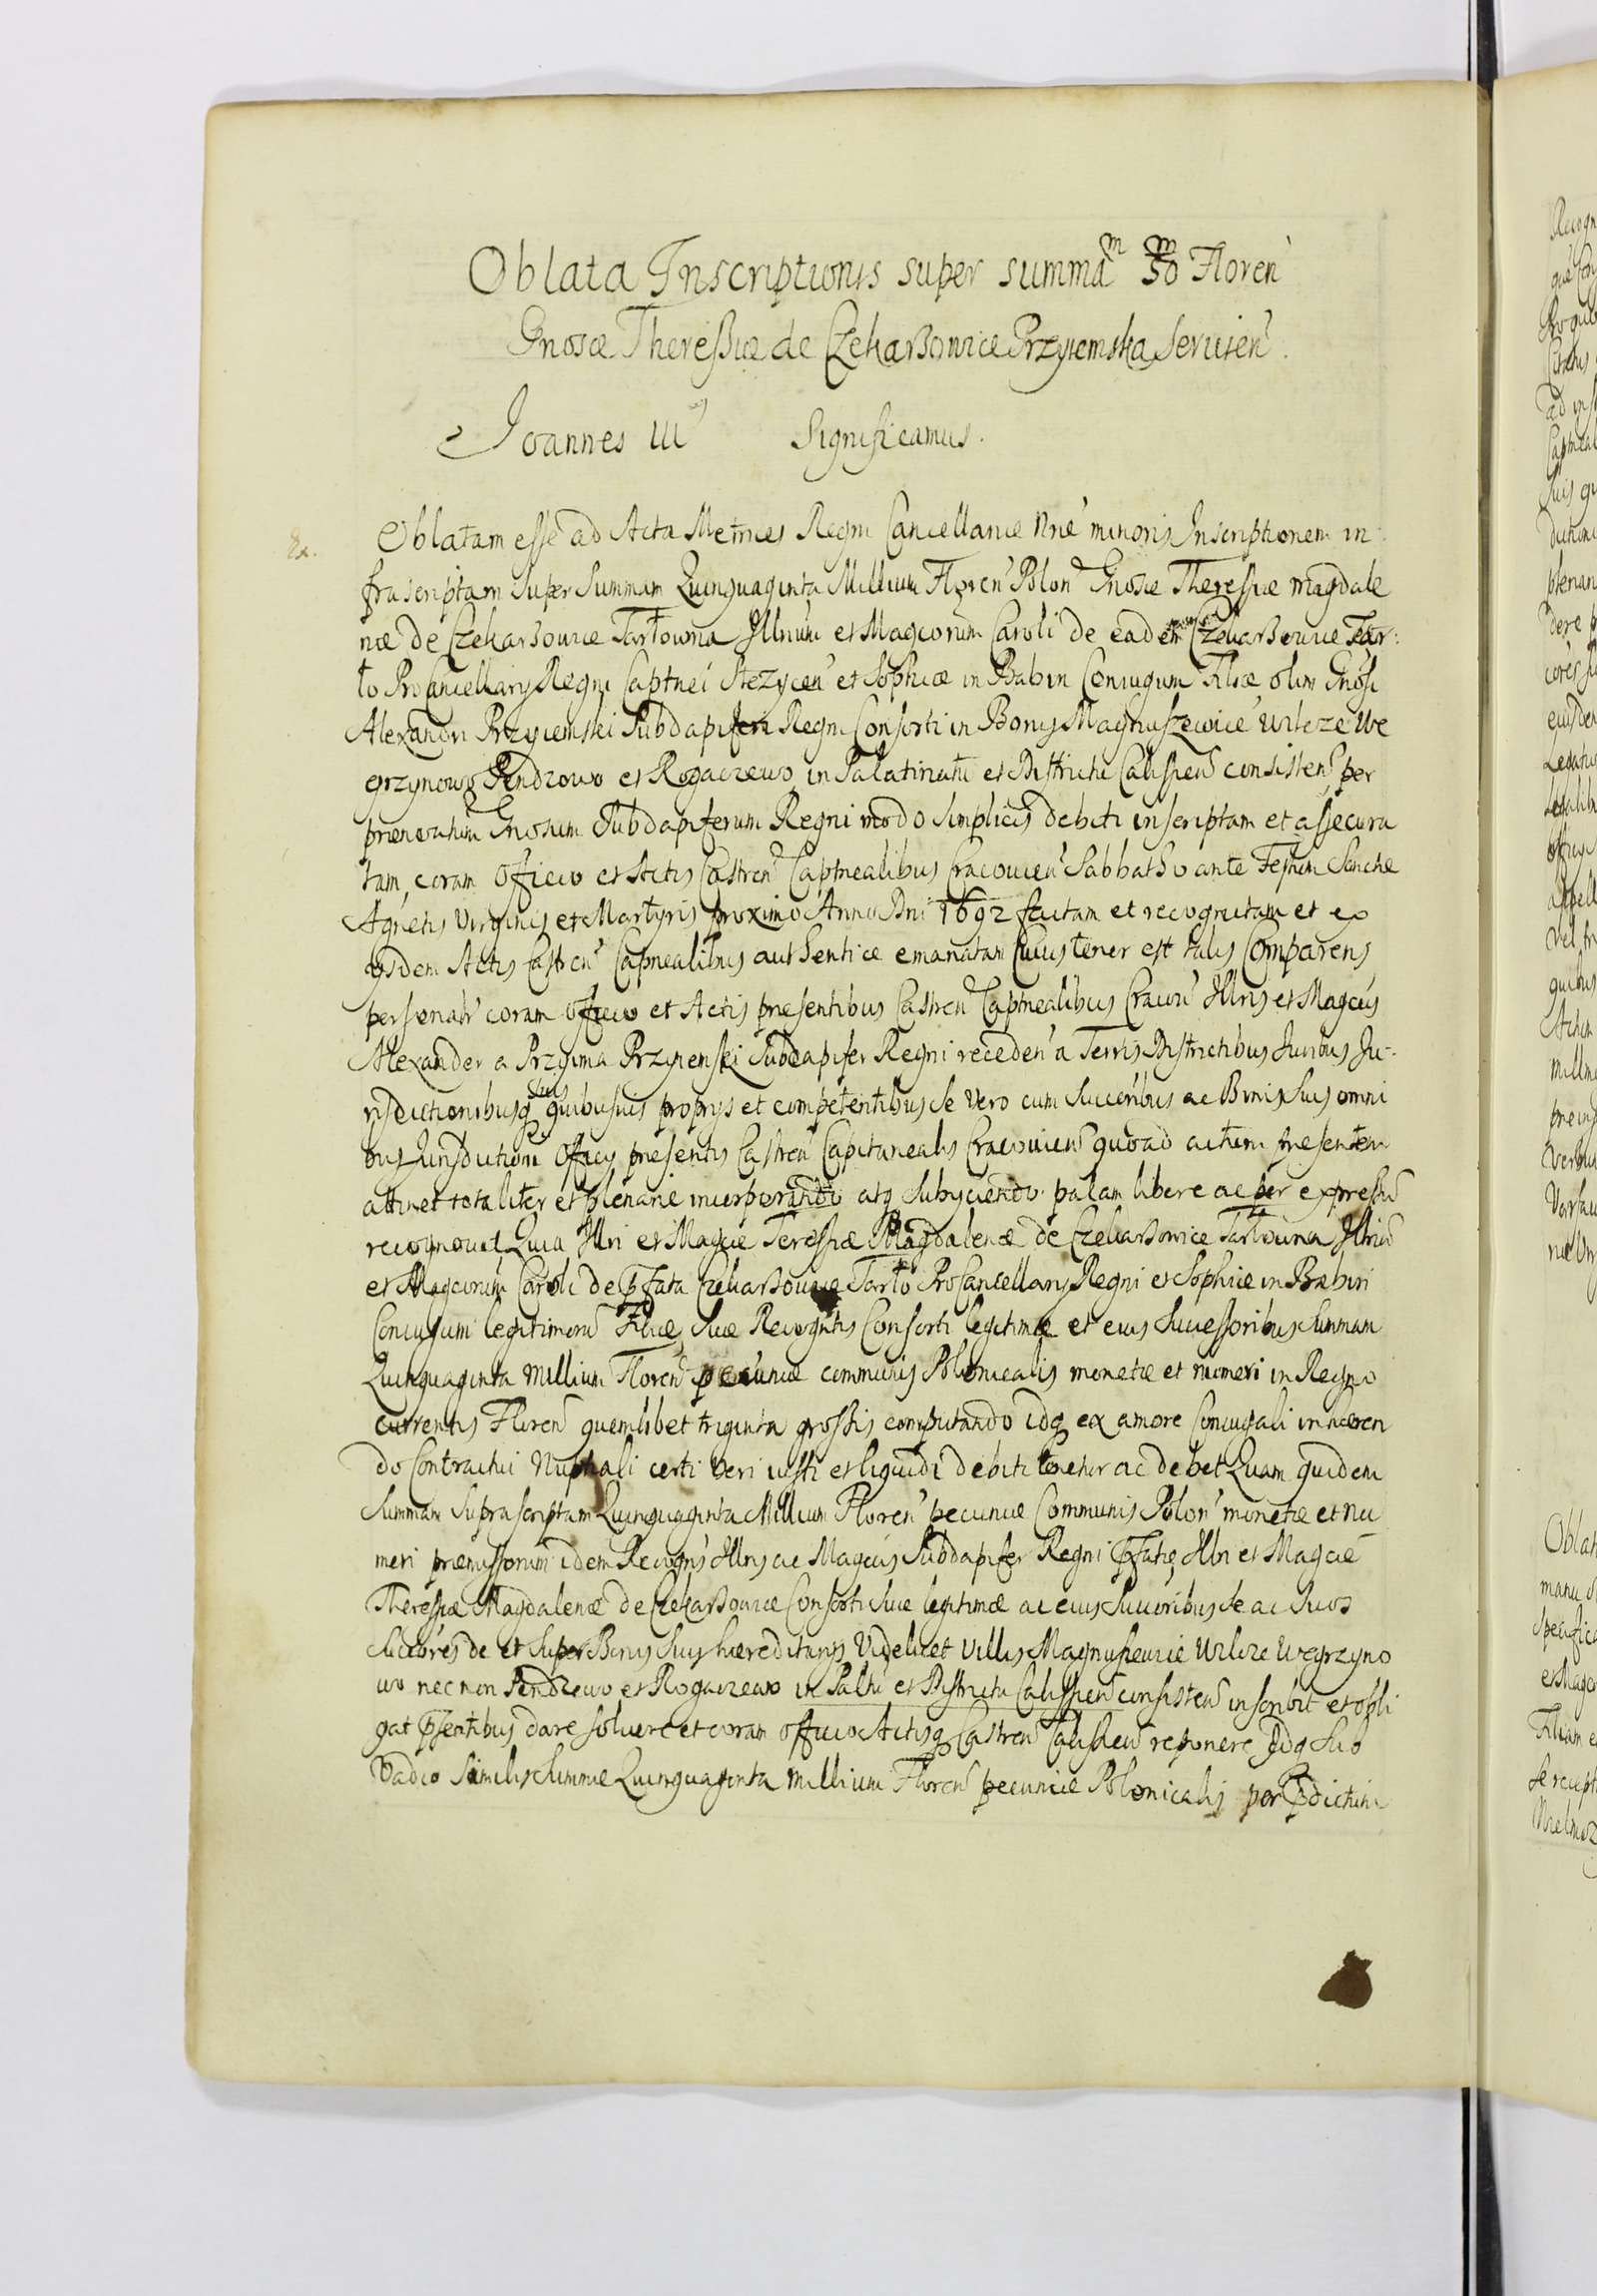 Oblata Inscriptionis super summã m 50 m Floren
Gnosæ Theressiæ de Czekarßowice Przyiemska Seruien.
Joannes III Significamus.
Ex. Oblatam esse ad Acta Metrices Regni Cancellariæ Nræ minoris Inscriptionem in
frascriptam super Summam Quinquaginta Millium Floren Polon Gnosæ Theressiæ Magdale
næ de Czekarßowice Tarłowna Illrium et Magcorum Caroli de eadem Czekarßowice Tar:
ło ProCancellary Regni Captnei Stezycen et Sophiæ in Babin Coniugum Filiæ olim Gnosi
Alexandri Przyiemski Subdapiferi Regni Consorti in Bonis Magnuszewice Wilcze We
grzynowo Pendzowo et Rogaczewo in Palatinatu et Districtu Calissien consisten per
prænominatum Gnosum Subdapiferum Regni modo simplicis debiti inscriptam et assecura
tam, coram Officio et Actis Castren Captnealibus Cracouien Sabbatho ante Festum Sanctæ
Agnetis Virginis et Martyris proximo Anno Dni 1692 factam et recognitam et ex
ijsdem Actis Castren Capnealibus authentice emanatam Cuius tenor est talis Comparens
personalr coram Officio et Actis præsentibus Castren Captnealibus Cracou Illris et Magcus
Alexander a Przyima Przyiemski Subdapifer Regni receden a Terris Districtibus Iuribus Iu-
risdictionibusq suis quibusuis proprys et competentibus se vero cum succribus ac Bonis suis omni
bus Iurisdictioni Officy præsentis Castren Capitanealis Cracouien quoad actum præsentem
attinet totaliter et plenarie incorporando atq subyciendo palam libere ac per expressũ
recognouit Quia Illri et Magcæ Teressiæ Magdalenæ de Czekarßowice Tarłowna Illriũ
et Magcorum Caroli de pfata Czekarßowice Tarło ProCancellary Regni et Sophiæ in Babin
Coniugum legitimorũ Filiæ suæ Recogntis Consorti legitimæ et eius Successoribus Summam
Quinquaginta Millium Floren pecuniæ communis Polonicalis monetæ et numeri in Regno
currentis Floren quemlibet triginta grossis computando idq ex amore Coniugali inhæren
do Contractui Nuptiali certi veri iusti et liquidi debiti tenetur ac debet Quam quidem
Summam suprascriptam Quinquaginta Millium Floren pecuniæ Communis Polon monetæ et nu
meri præmissorum idem Recogns Illris ac Magcus Subdapifer Regni pfatæ Illri et Magcæ
Theressiæ Magdalenæ de Czekarßowice Consorti suæ legitimæ ac eius Succribus se ac suos
Succores de et super Bonis suis hæreditarys Videlicet Villis Magnuszewice Wilcze Wegrzyno
wo nec non Pendzewo et Rogaczewo in Paltu et Districtu Calissien consisten inscribit et obli
gat psentibus dare soluere et coram officio Actisq Castren Calissien reponere Idq sub
Vadio similis Summæ Quinquaginta Millium Floren pecuniæ Polonicalis per pdictum